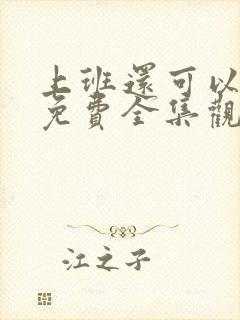 上班還可以
免費全集觀
江之子